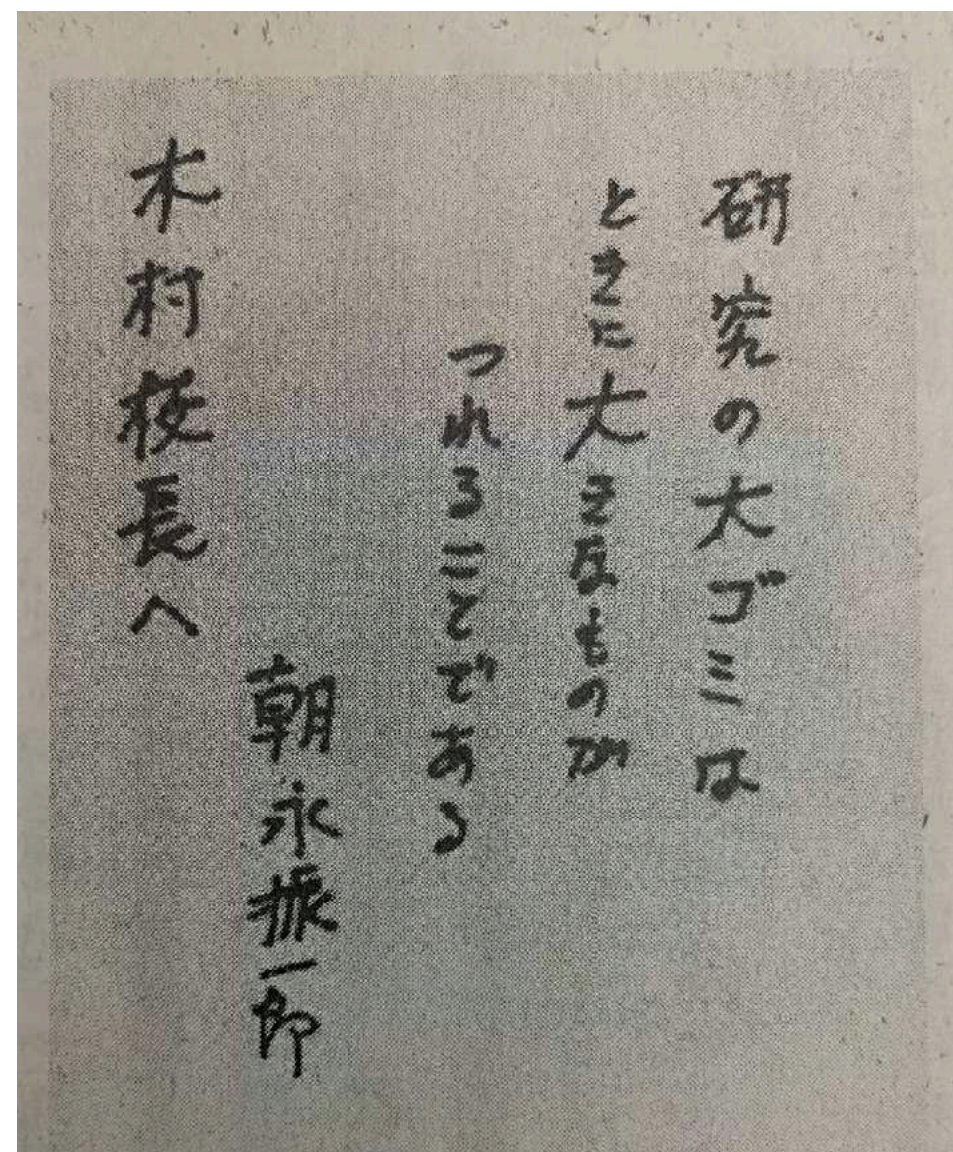 研究の大ゴミは
ときに大きなものが
つれることである
朝永振一郎
木村校長へ